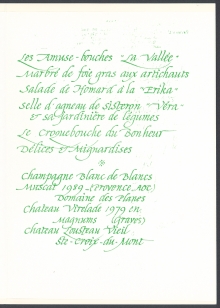 Les Amuse-bouches "La Vallée"
Marbré de foie gras aux artichauts
Salade de Homard à la "Erika"
Selle d'agneau de Sisteron "Véra"
& sa Jardinière de légumes
Le Croquebouche du Bonheur
Délices & Mignardises
Champagne Blanc de Blancs
Muscat 1989 (Provence, AOC)
Domaine des Planes
Chateau Virelade 1979 en
Magnums (Graves)
Chateau Lousteau Vieil
Ste-Croix-du-Mont